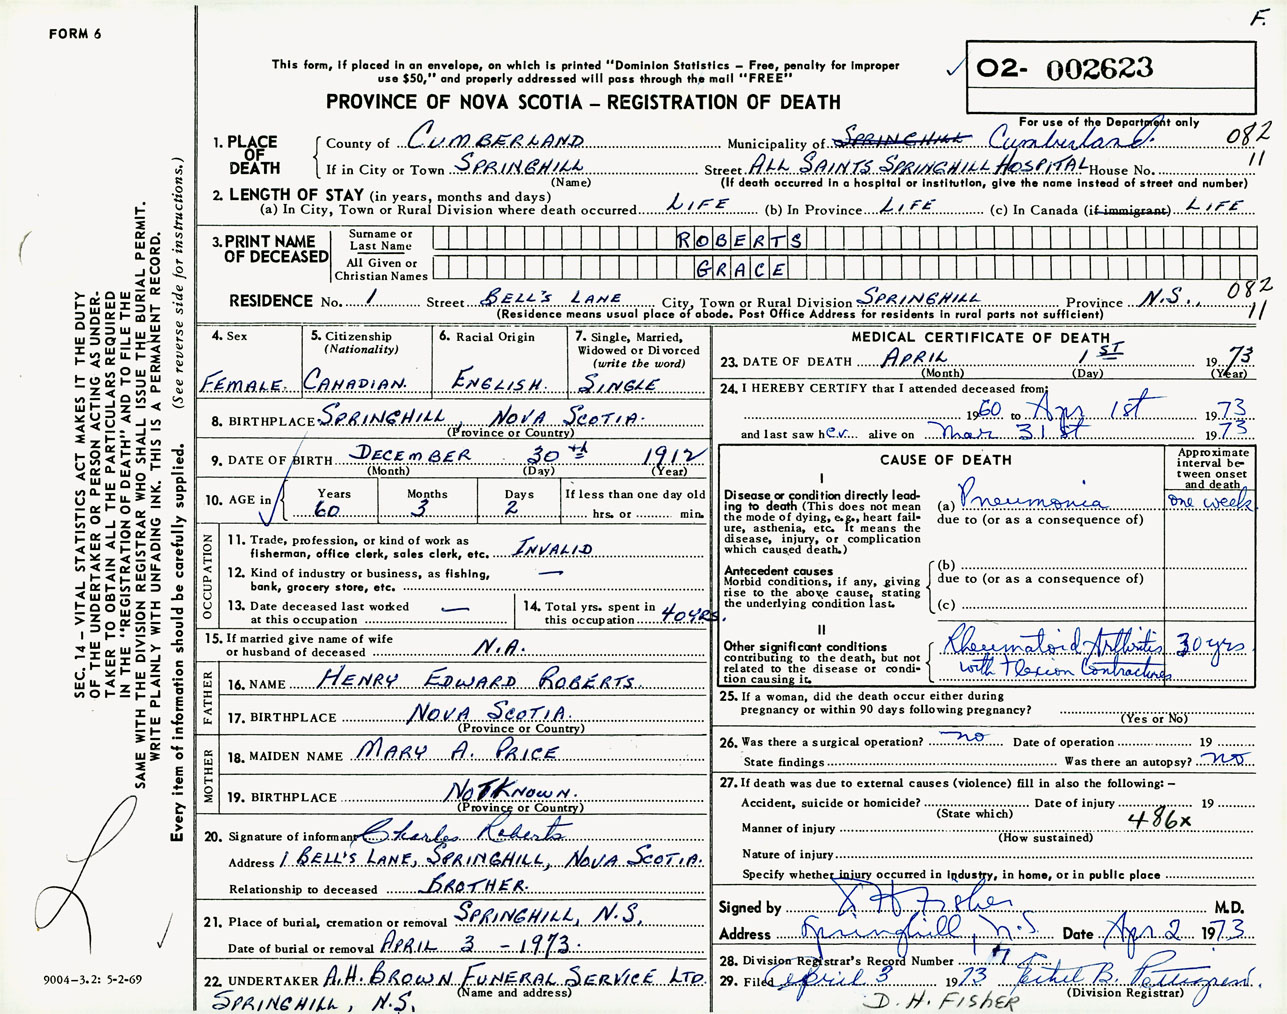 F.
FORM 6
This form, if placed in an envelope, on which is printed "Dominion Statistics – Free, penalty for improper
use $50," and properly addressed will pass through the mail "FREE"
PROVINCE OF NOVA SCOTIA – REGISTRATION OF DEATH
02- 002623
For use of the Department only
1. PLACE OF DEATH County of CUMBERLAND Municipality of SPRINGHILL Cumberland. 082
If in City or Town SPRINGHILL Street ALL SAINTS SPRINGHILL HOSPITAL House No. 11
(Name) (If death occurred in a hospital or institution, give the name instead of street and number)
2. LENGTH OF STAY (in years, months and days)
(a) In City, Town or Rural Division where death occurred LIFE (b) In Province LIFE (c) In Canada (if immigrant) LIFE
3. PRINT NAME OF DECEASED Surname or Last Name ROBERTS
All Given or Christian Names GRACE
RESIDENCE No. 1 Street BELL'S LANE City, Town or Rural Division SPRINGHILL Province N.S. 082 11
(Residence means usual place of abode. Post Office Address for residents in rural parts not sufficient)
4. Sex FEMALE.
5. Citizenship (Nationality) CANADIAN.
6. Racial Origin ENGLISH.
7. Single, Married, Widowed or Divorced (write the word) SINGLE
8. BIRTHPLACE SPRINGHILL, NOVA SCOTIA.
(Province or Country)
9. DATE OF BIRTH DECEMBER 30th 1912
(Month) (Day) (Year)
10. AGE in Years 60 Months 3 Days 2 If less than one day old hrs. or min.
OCCUPATION
11. Trade, profession, or kind of work as fisherman, office clerk, sales clerk, etc. INVALID
12. Kind of industry or business, as fishing, bank, grocery store, etc. —
13. Date deceased last worked at this occupation —
14. Total yrs. spent in this occupation 40 YRS.
15. If married give name of wife or husband of deceased N.A.
FATHER
16. NAME HENRY EDWARD ROBERTS.
17. BIRTHPLACE NOVA SCOTIA.
(Province or Country)
MOTHER
18. MAIDEN NAME MARY A. PRICE
19. BIRTHPLACE NOT KNOWN.
(Province or Country)
20. Signature of informant Charles Roberts
Address 1 BELL'S LANE, SPRINGHILL, NOVA SCOTIA.
Relationship to deceased BROTHER.
21. Place of burial, cremation or removal SPRINGHILL, N.S.
Date of burial or removal APRIL 3 - 1973.
22. UNDERTAKER A.H. BROWN FUNERAL SERVICE LTD.
(Name and address)
SPRINGHILL, N.S.
MEDICAL CERTIFICATE OF DEATH
23. DATE OF DEATH APRIL 1ST 1973
(Month) (Day) (Year)
24. I HEREBY CERTIFY that I attended deceased from:
1960 to Apr 1st 1973
and last saw her alive on Mar 31st 1973
CAUSE OF DEATH
Approximate interval between onset and death
I
Disease or condition directly leading to death (This does not mean the mode of dying, e.g., heart failure, asthenia, etc. It means the disease, injury, or complication which caused death.)
(a) Pneumonia one week
due to (or as a consequence of)
Antecedent causes
Morbid conditions, if any, giving rise to the above cause, stating the underlying condition last.
(b)
due to (or as a consequence of)
(c)
II
Other significant conditions contributing to the death, but not related to the disease or condition causing it.
Rheumatoid Arthritis 30 yrs
with Flexion Contractures
25. If a woman, did the death occur either during pregnancy or within 90 days following pregnancy?
(Yes or No)
26. Was there a surgical operation? no Date of operation 19
State findings Was there an autopsy? no
27. If death was due to external causes (violence) fill in also the following: –
Accident, suicide or homicide? Date of injury 19
(State which)
Manner of injury 486x
(How sustained)
Nature of injury
Specify whether injury occurred in industry, in home, or in public place
Signed by D H Fisher M.D.
Address Springhill, N.S Date Apr 2 1973
28. Division Registrar's Record Number 17
29. Filed April 3 1973 Ethel B.
(Division Registrar)
D. H. FISHER
SEC. 14 – VITAL STATISTICS ACT MAKES IT THE DUTY
OF THE UNDERTAKER OR PERSON ACTING AS UNDER-
TAKER TO OBTAIN ALL THE PARTICULARS REQUIRED
IN THE "REGISTRATION OF DEATH" AND TO FILE THE
SAME WITH THE DIVISION REGISTRAR WHO SHALL ISSUE THE BURIAL PERMIT.
WRITE PLAINLY WITH UNFADING INK. THIS IS A PERMANENT RECORD.
Every item of information should be carefully supplied. (See reverse side for instructions.)
9004–3.2: 5-2-69